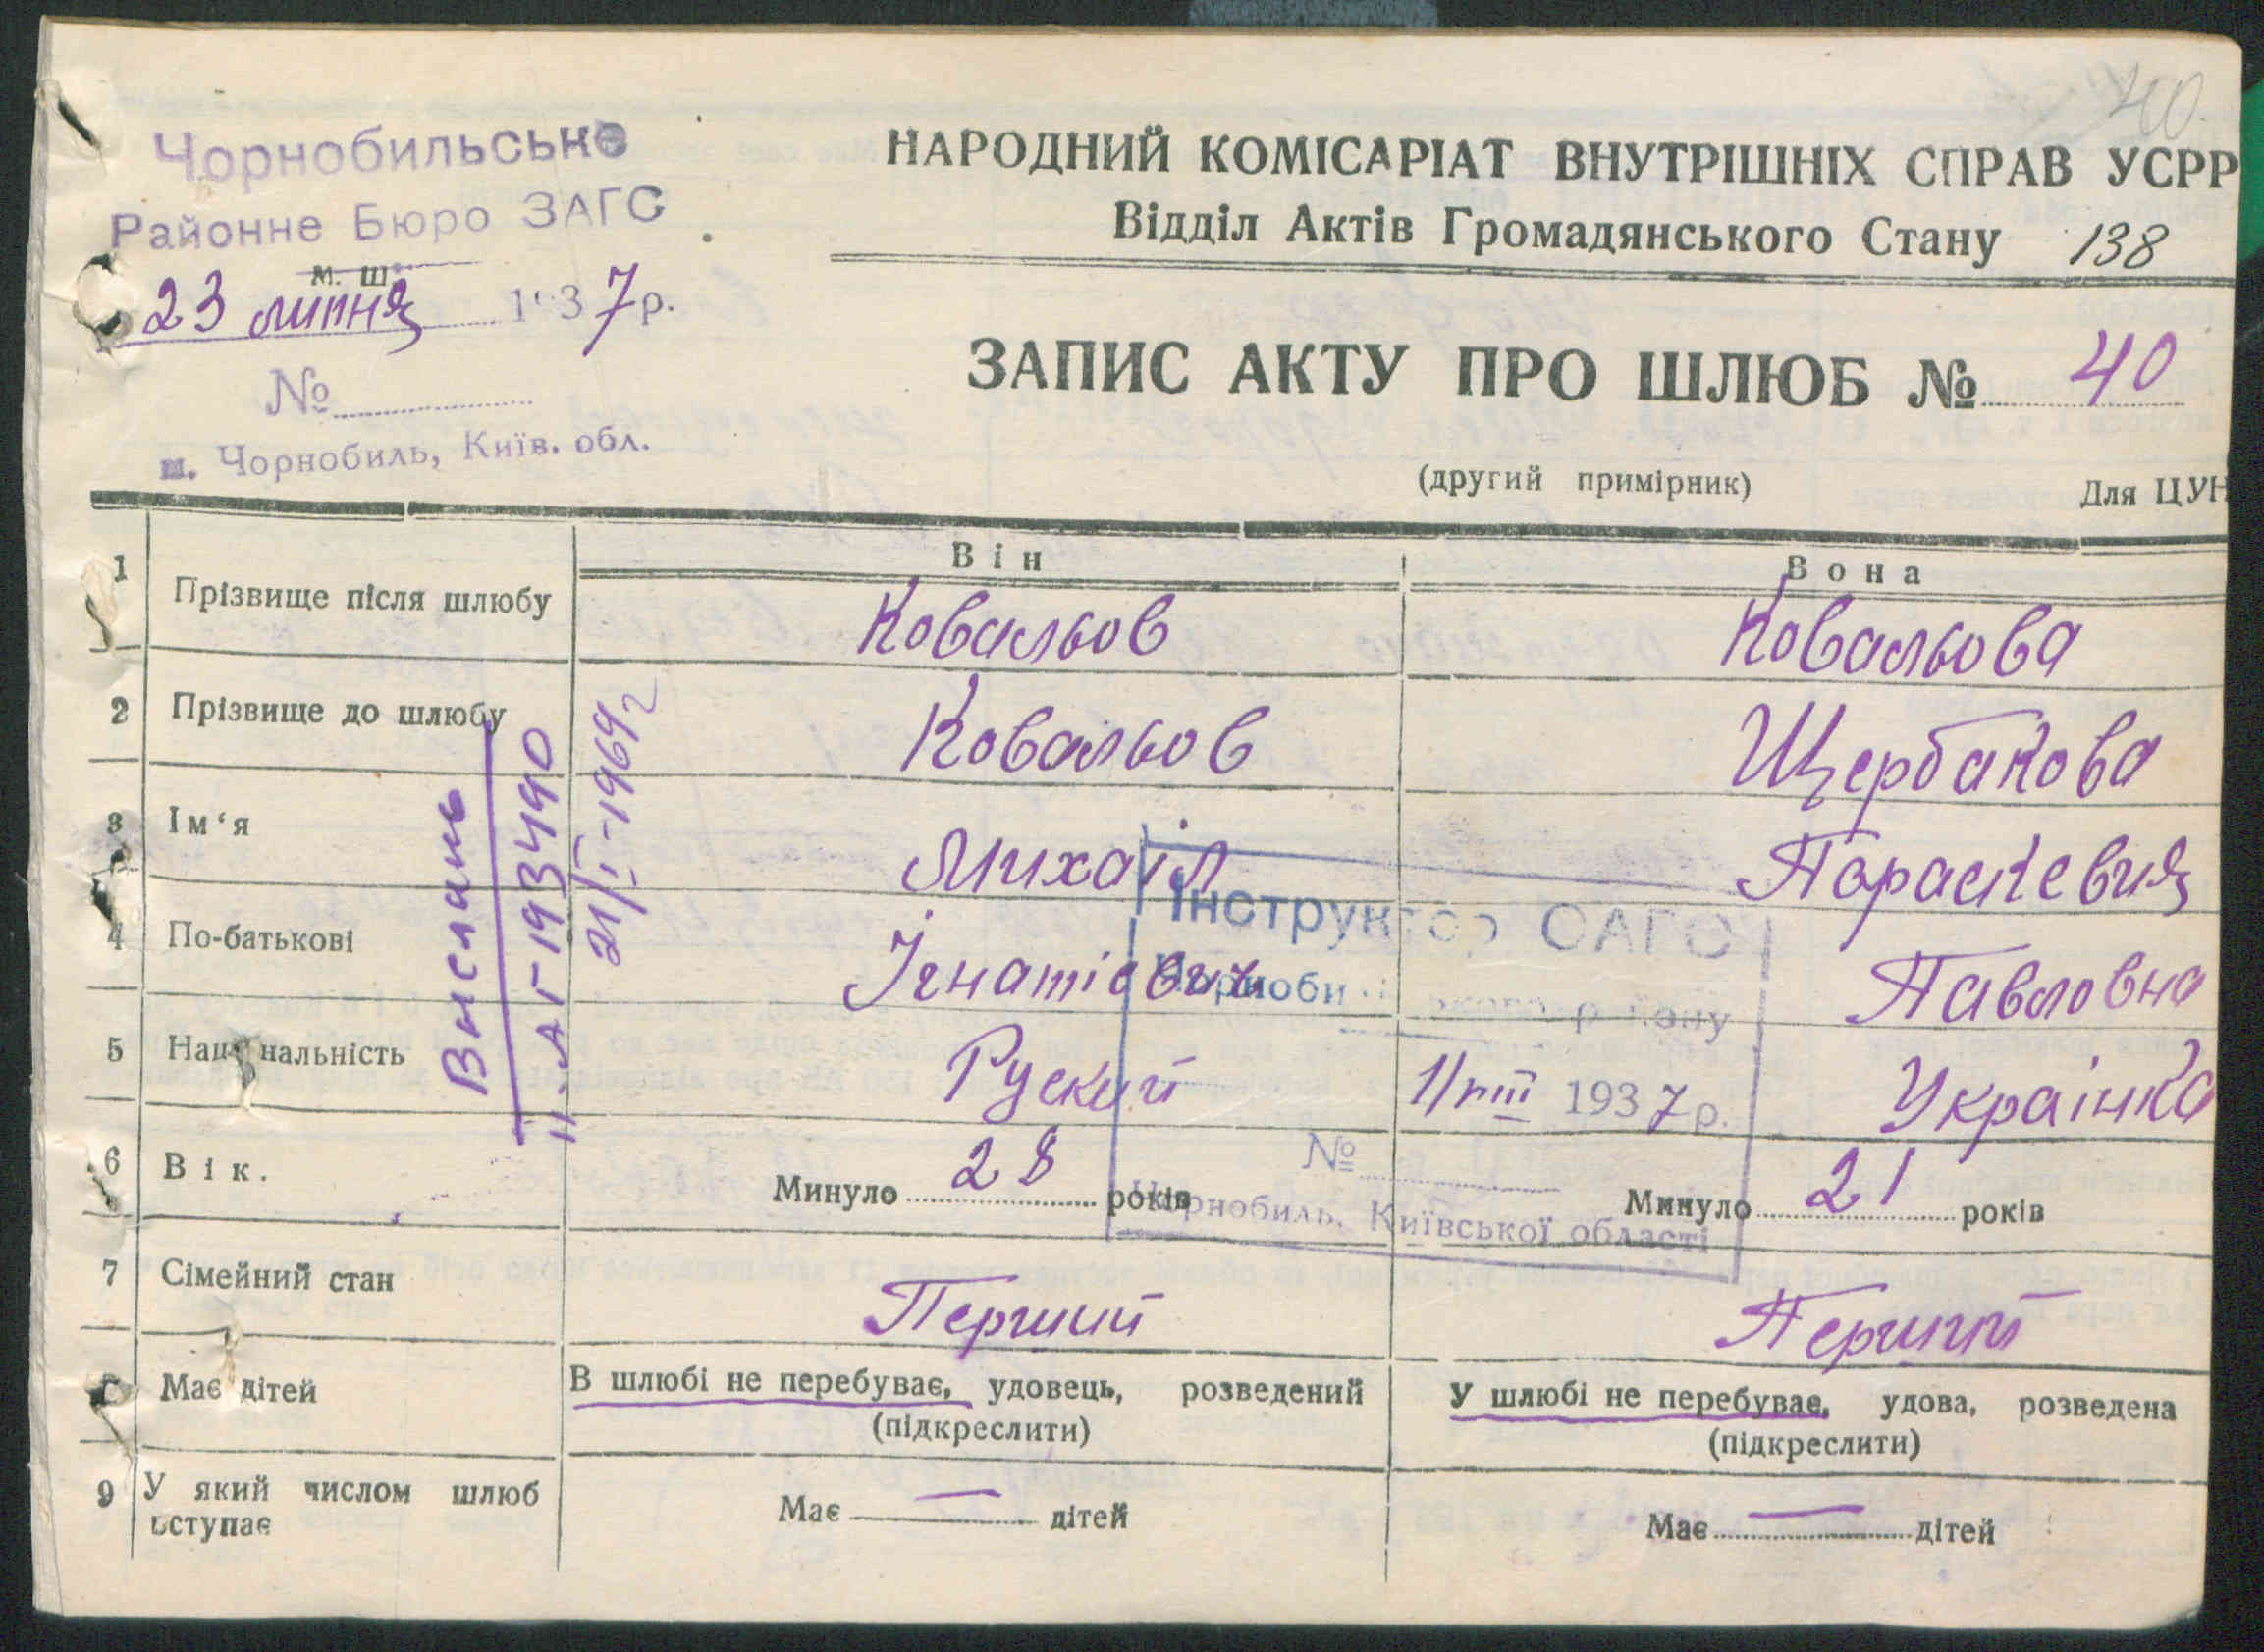 40.
Чорнобильське
Районне Бюро ЗАГС
м. ш.
23 липня 1937 р.
№
м. Чорнобиль, Київ. обл.
НАРОДНИЙ КОМІСАРІАТ ВНУТРІШНІХ СПРАВ УСРР
Відділ Актів Громадянського Стану 138
ЗАПИС АКТУ ПРО ШЛЮБ № 40
(другий примірник) Для ЦУН
Він Вона
1 Прізвище після шлюбу Ковальов Ковальова
2 Прізвище до шлюбу Ковальов Щербакова
3 Ім‘я Михаіл Параскевия
4 По-батькові Ігнатієвич Павловна
5 Національність Руский Украінка
6 Вік. Минуло 28 років Минуло 21 років
7 Сімейний стан Перший Перший
8 Має дітей В шлюбі не перебуває, удовець, розведений У шлюбі не перебуває, удова, розведена
(підкреслити) (підкреслити)
9 У який числом шлюб вступає Має — дітей Має — дітей
Выслань
II-АГ-193490
21/I-1969 г
Інструктор ОАГС
Чорноби району
11/VIII 1937 р.
№
Чорнобиль, Київської області